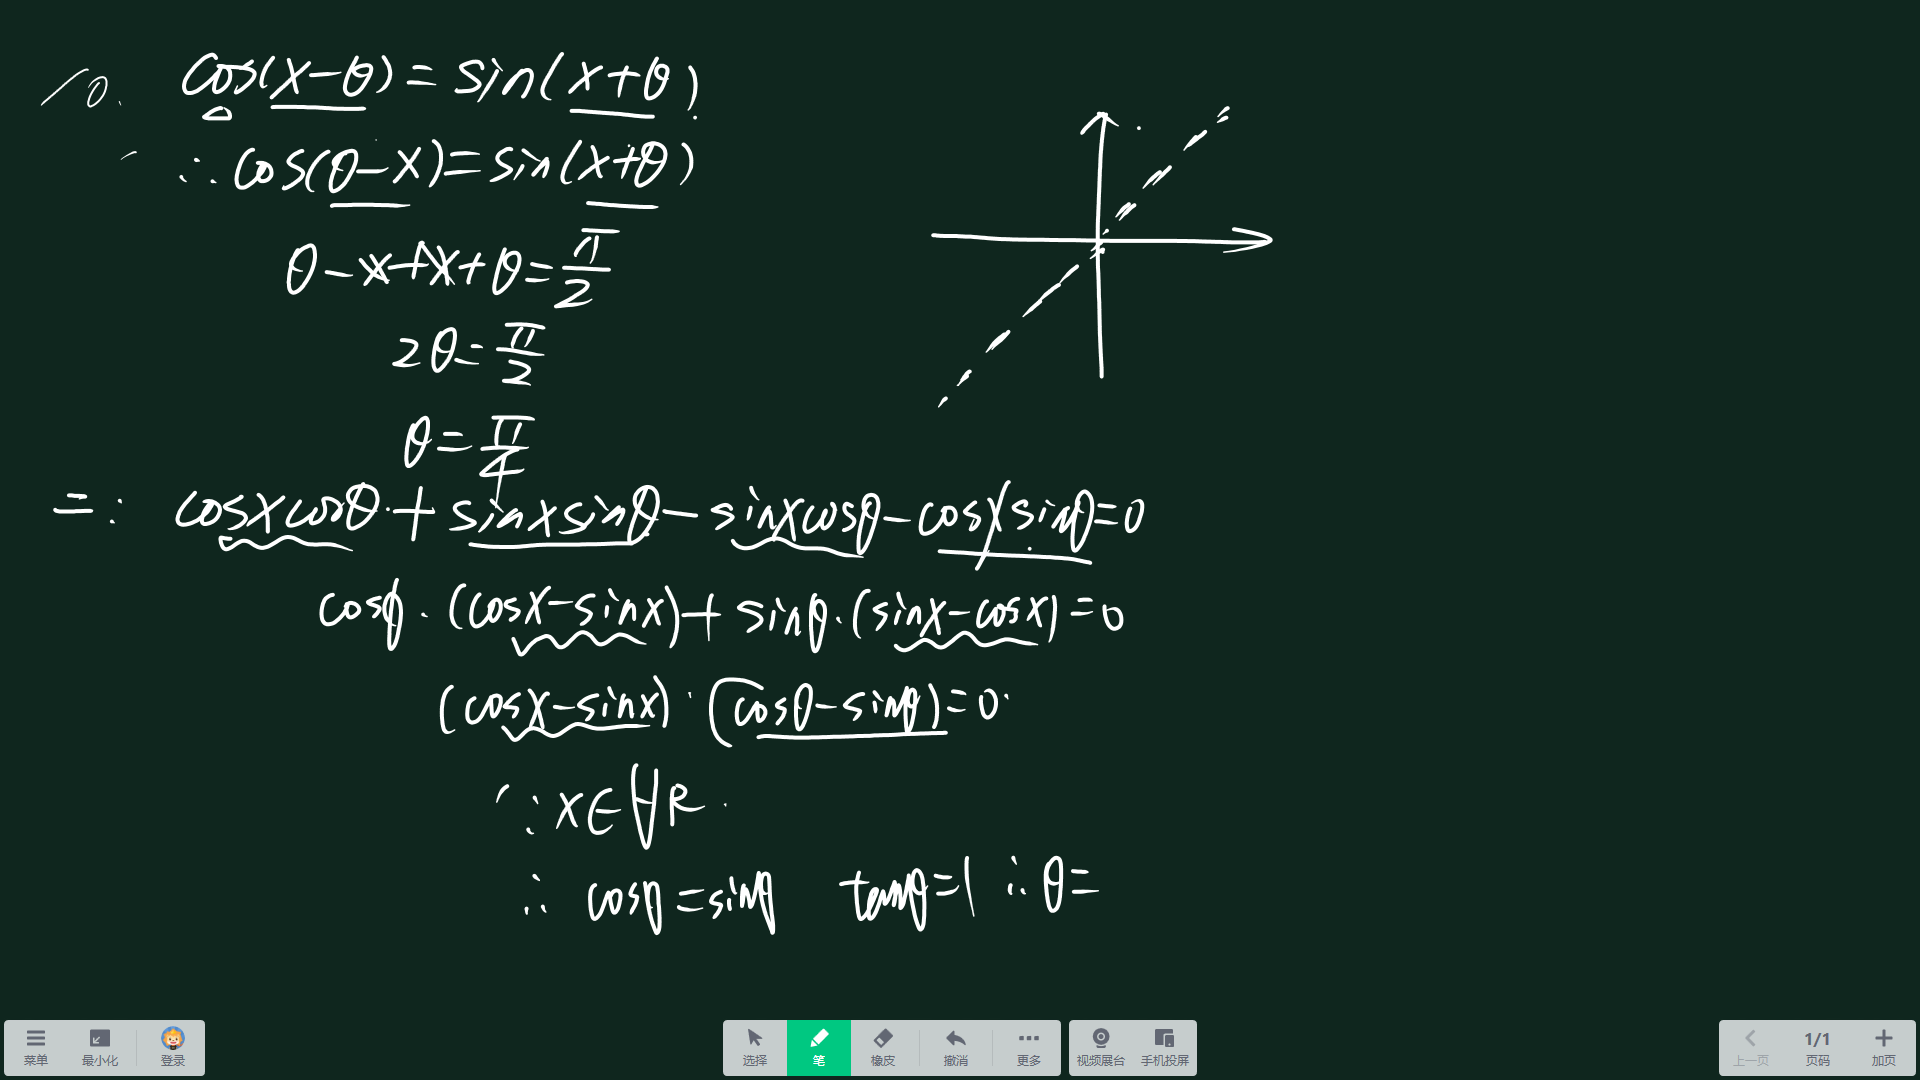 10. cos(x-θ)=sin(x+θ)
∴cos(θ-x)=sin(x+θ)
θ-x+x+θ=π/2
2θ=π/2
θ=π/4
二: cosxcosθ+sinxsinθ-sinxcosθ-cosxsinθ=0
cosθ·(cosx-sinx)+sinθ·(sinx-cosx)=0
(cosx-sinx)·(cosθ-sinθ)=0
∵x∈∀R
∴ cosθ=sinθ tanθ=1 ∴θ=
菜单 最小化 登录 选择 笔 橡皮 撤消 更多 视频展台 手机投屏 上一页 1/1 页码 加页